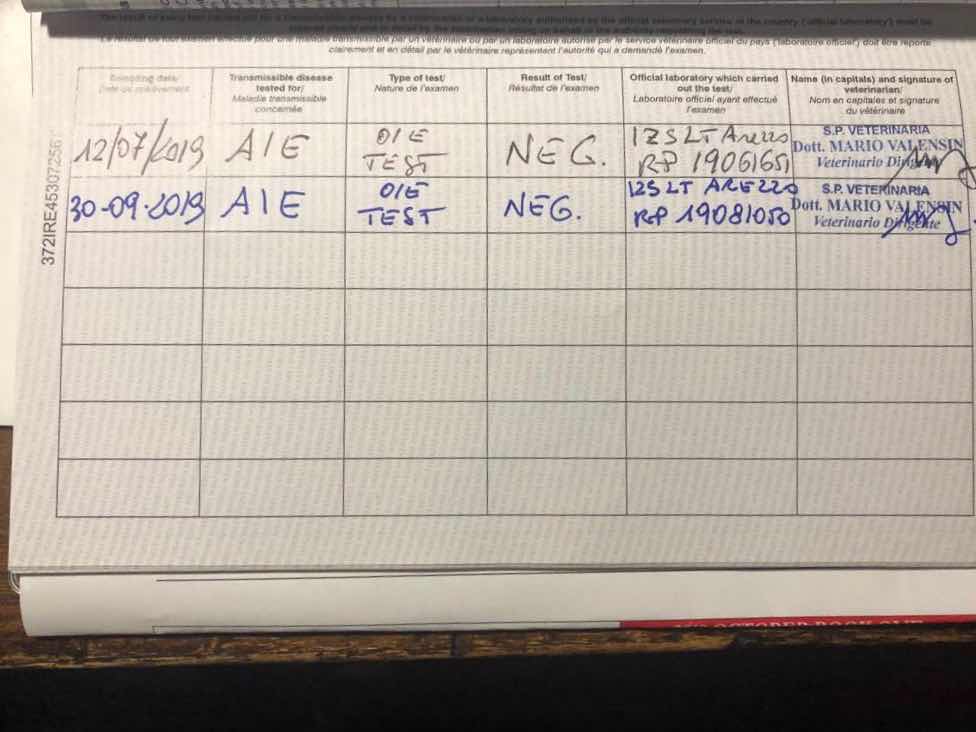 The result of every test carried out for a transmissible disease by a veterinarian or a laboratory authorised by the official veterinary service of the country ('official laboratory') must be
Le résultat de tout examen effectué pour une maladie transmissible par un vétérinaire ou par un laboratoire autorisé par le service vétérinaire officiel du pays ('laboratoire officiel') doit être reporté
clairement et en détail par le vétérinaire représentant l'autorité qui a demandé l'examen.
Sampling date/
Date de prélèvement
Transmissible disease
tested for/
Maladie transmissible
concernée
Type of test/
Nature de l'examen
Result of Test/
Résultat de l'examen
Official laboratory which carried
out the test/
Laboratoire officiel ayant effectué
l'examen
Name (in capitals) and signature of
veterinarian/
Nom en capitales et signature
du vétérinaire
12/07/2019
AIE
OIE
TEST
NEG.
IZSLT Arezzo
RP 19061651
S.P. VETERINARIA
Dott. MARIO VALENSIN
Veterinario Dirigente
30-09-2019
AIE
OIE
TEST
NEG.
IZSLT AREZZO
RP 19081050
S.P. VETERINARIA
Dott. MARIO VALENSIN
Veterinario Dirigente
372IRE45307256